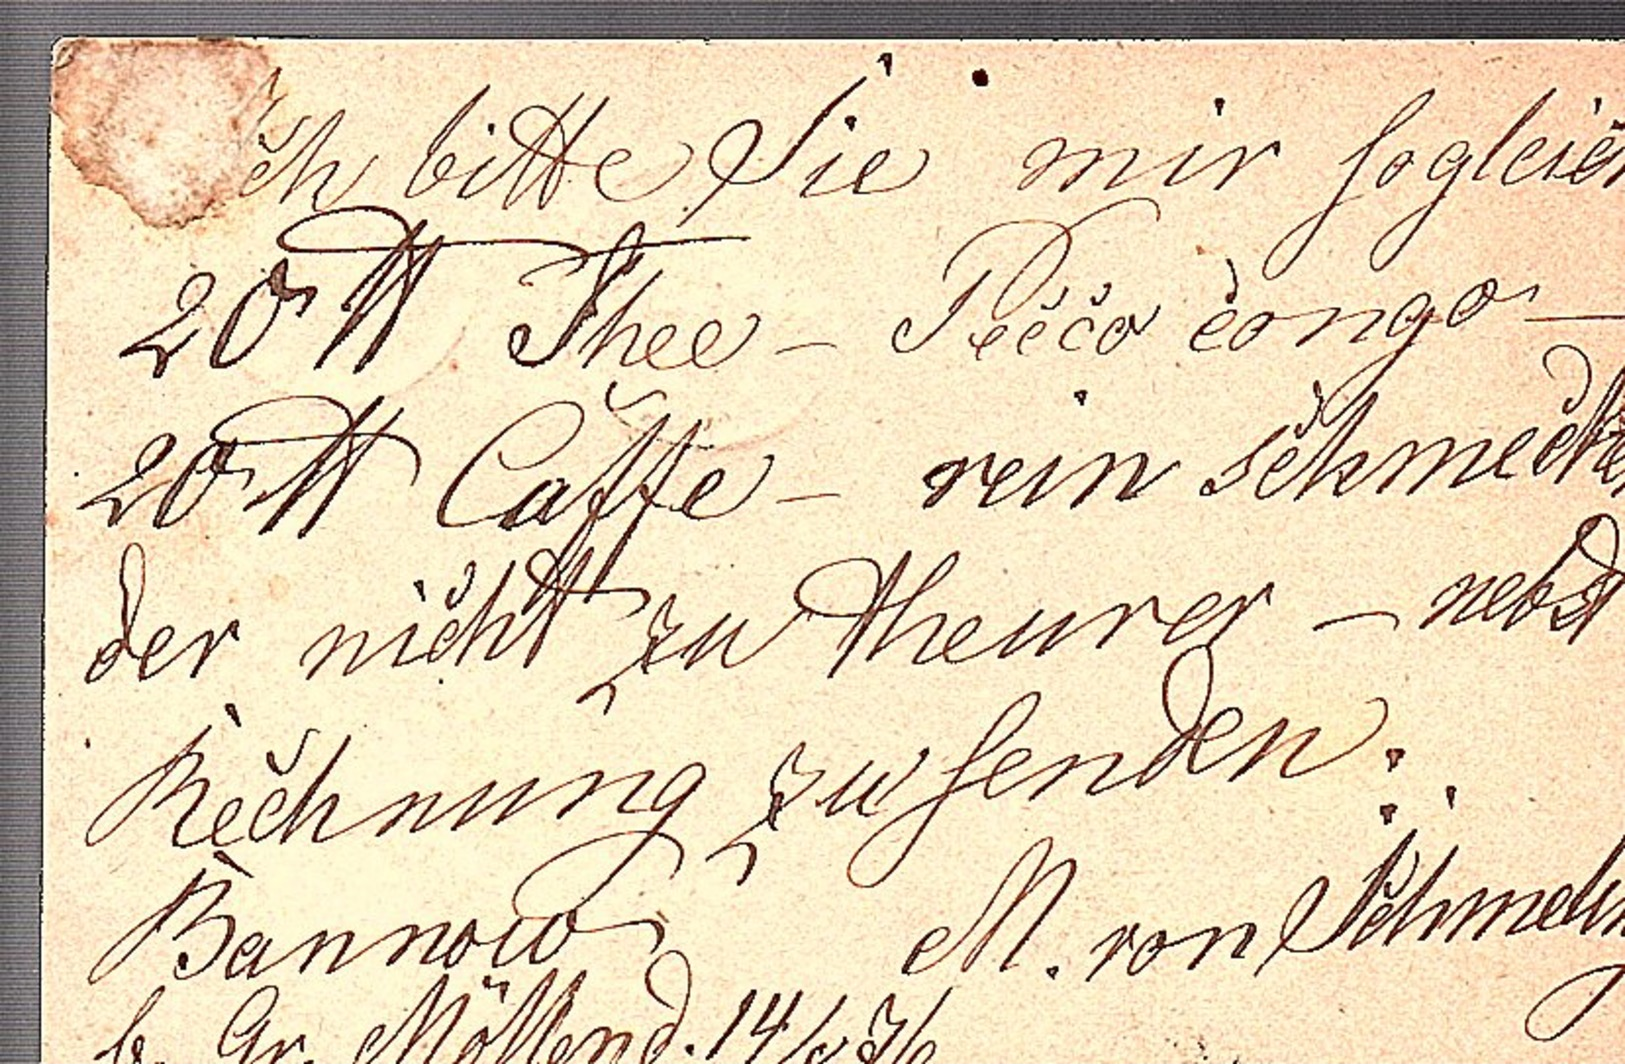 Ich bitte Sie mir sogleich
20 ℔ Thee – Pecco congo –
20 ℔ Caffe – rein schmecken
der nicht zu theurer – nebst
Rechnung zu senden.
Bannow M. von
b. Gr. Möllend. 14/